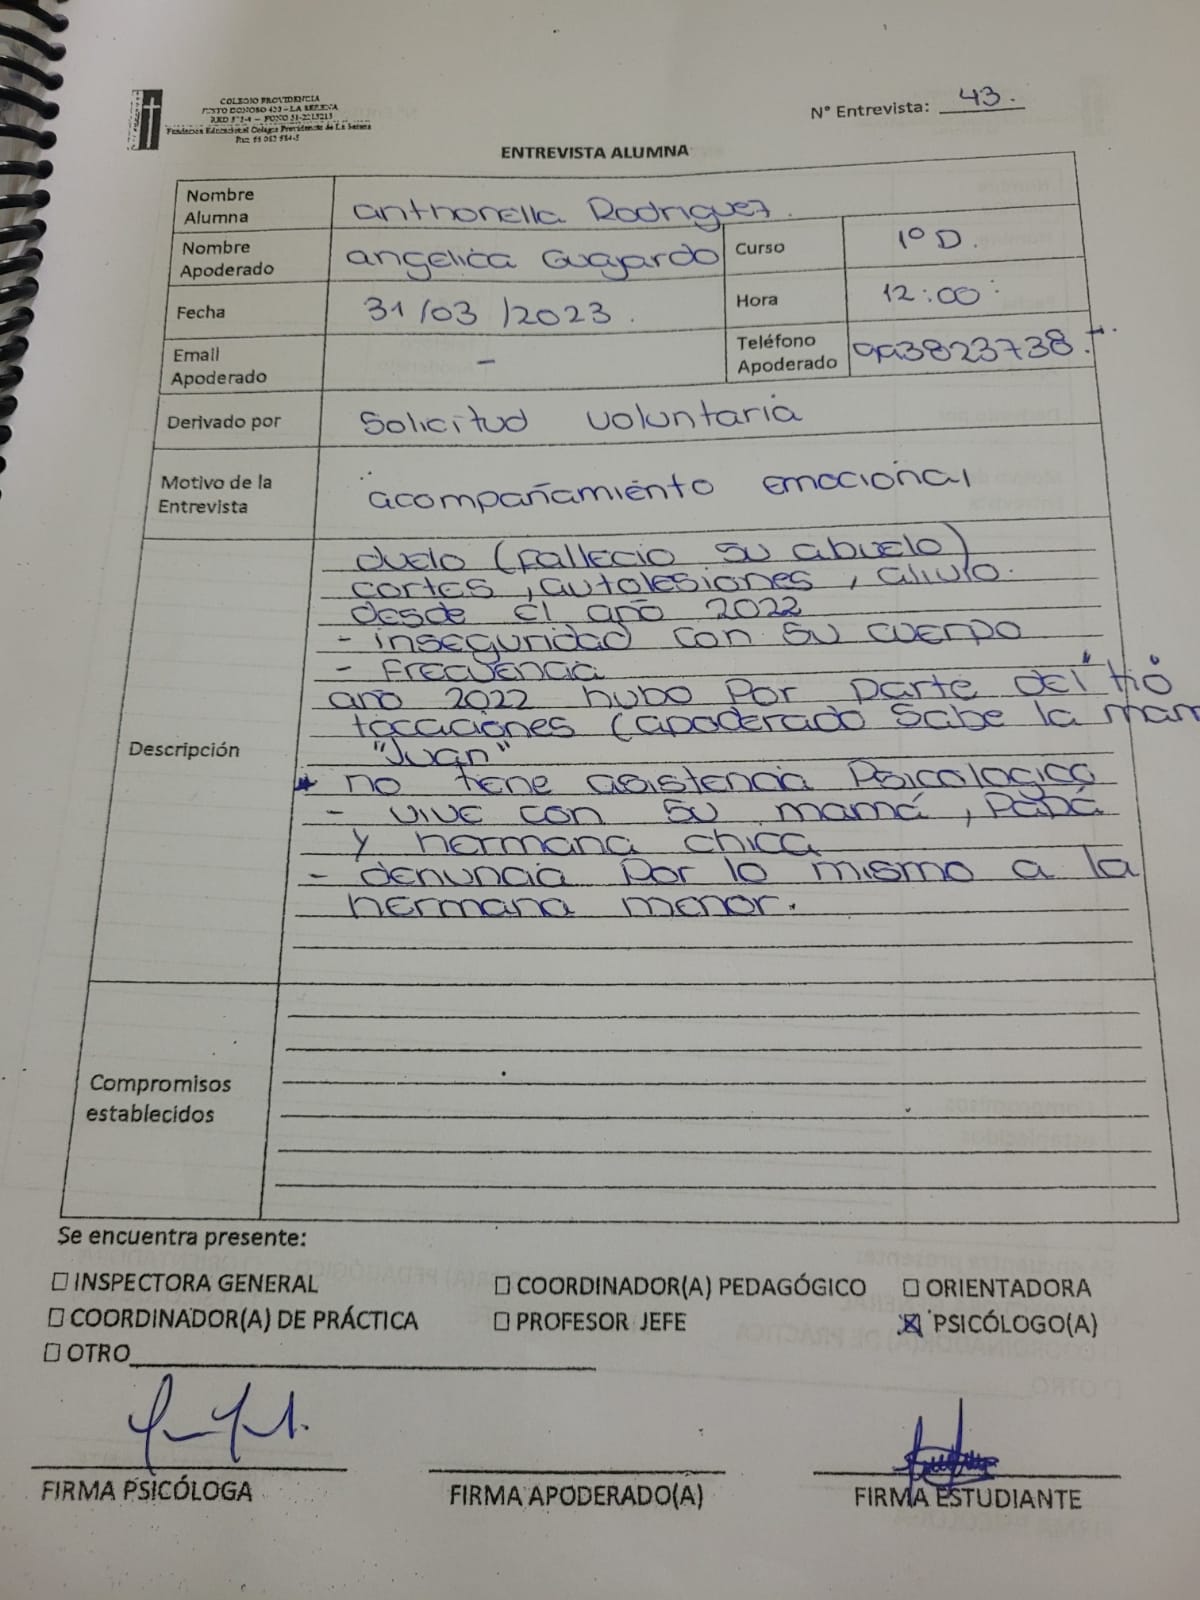 COLEGIO PROVIDENCIA
JUSTO DONOSO 420 - LA SERENA
Fundación Educacional Colegio Providencia de La Serena
N° Entrevista: 43.
ENTREVISTA ALUMNA
Nombre Alumna anthonella Rodriguez.
Nombre Apoderado angelica Guajardo Curso 1° D.
Fecha 31/03/2023. Hora 12:00
Email Apoderado - Teléfono Apoderado 993823738.
Derivado por Solicitud voluntaria
Motivo de la Entrevista acompañamiento emocional
Descripción
duelo (fallecio su abuelo)
cortes, autolesiones, alivio.
desde el año 2022
- inseguridad con su cuerpo
- Frecuencia
año 2022 hubo Por Parte del tio
tocaciones (apoderado Sabe la mam
"Juan"
* no tiene asistencia Psicologica
- vive con su mamá, Papá
y hermana chica
- denuncia Por lo mismo a la
hermana menor.
Compromisos establecidos
Se encuentra presente:
☐ INSPECTORA GENERAL ☐ COORDINADOR(A) PEDAGÓGICO ☐ ORIENTADORA
☐ COORDINADOR(A) DE PRÁCTICA ☐ PROFESOR JEFE ☒ PSICÓLOGO(A)
☐ OTRO
FIRMA PSICÓLOGA FIRMA APODERADO(A) FIRMA ESTUDIANTE